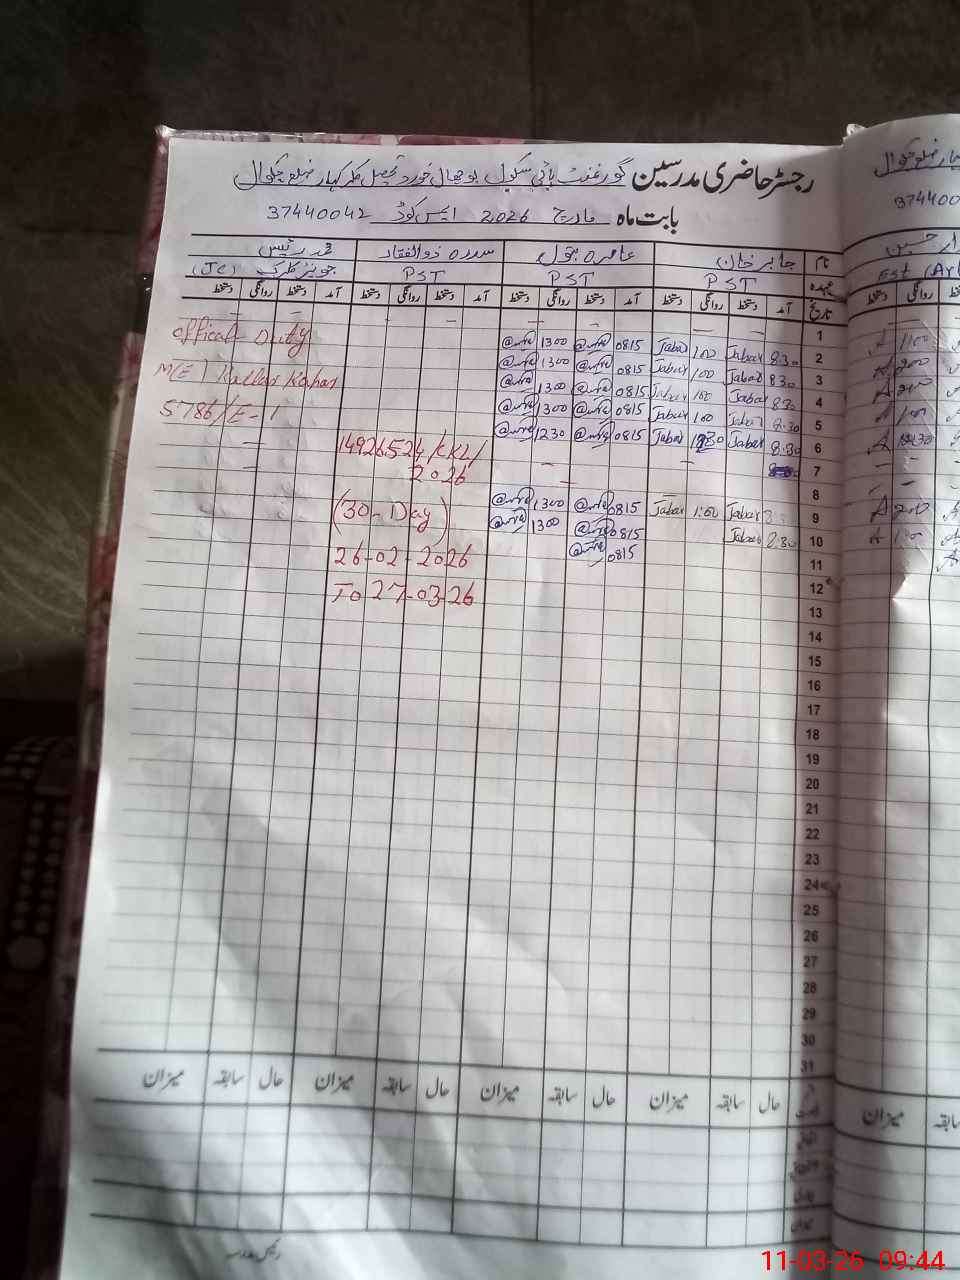 رجسٹر حاضری مدرسین گورنمنٹ ہائی سکول بوچھال خورد تحصیل کلر کہار ضلع چکوال
بابت ماہ مارچ 2026 ایس کوڈ 37440042
نام جابر خان عامرہ بتول سدرہ ذوالفقار محمد رئیس
عہدہ PST PST PST جونیئر کلرک (JC)
تاریخ آمد دستخط روانگی دستخط آمد دستخط روانگی دستخط آمد دستخط روانگی دستخط آمد دستخط روانگی دستخط
1
2 8:30 Jabar 1:00 Jabar 0815 1300
3 8:30 Jabar 1:00 Jabar 0815 1300
4 8:30 Jabar 1:00 Jabar 0815 1300
5 8:30 Jabar 1:00 Jabar 0815 1300
6 8:30 Jabar Jabar 0815 1230
7
8
9 Jabar 1:00 Jabar 0815 1300
10 8:30 Jabar 0815 1300
11 0815
12
13
14
15
16
17
18
19
20
21
22
23
24
25
26
27
28
29
30
31
Offical Duty
M(E) Kallar Kahar
5786/E-1
14926524/KKL/
2026
(30-Day)
26-02-2026
To 27-03-26
حال سابقہ میزان حال سابقہ میزان حال سابقہ میزان حال سابقہ میزان
رئیس مدرسہ
374400
Est (Ar
دستخط روانگی
A 1:00
A 200
A 200
A 100
A 1230
A 200
میزان سابقہ
11-03-26 09:44